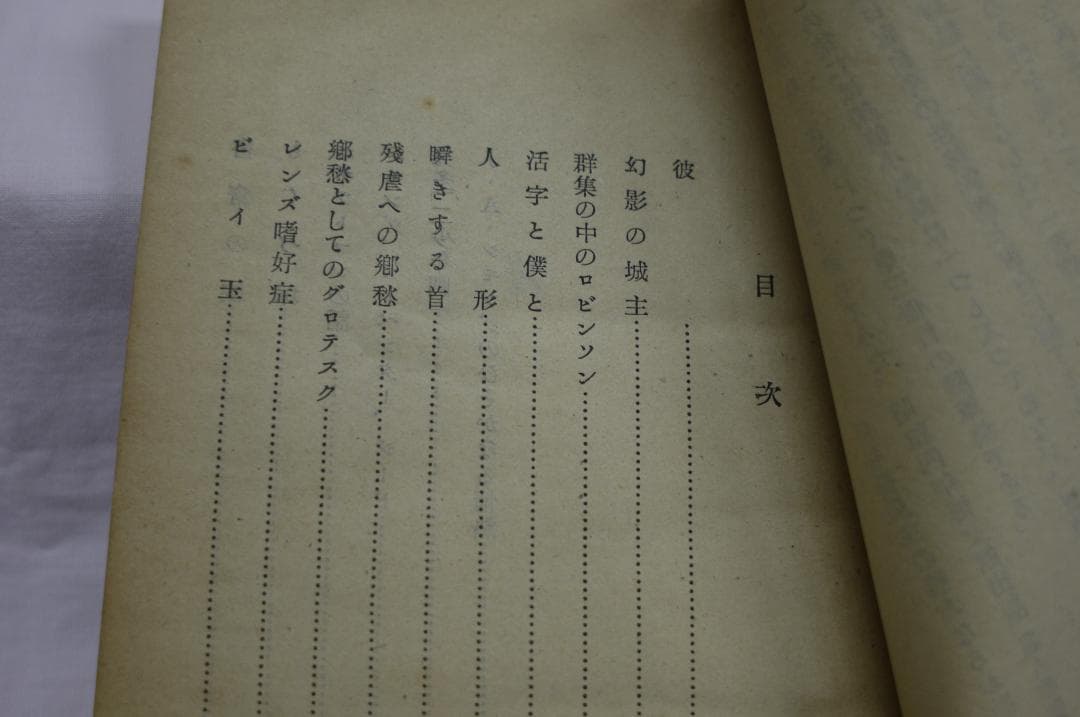 目次
彼
幻影の城主
群集の中のロビンソン
活字と僕と
人形
瞬きする首
残虐への郷愁
郷愁としてのグロテスク
レンズ嗜好症
ビイ玉